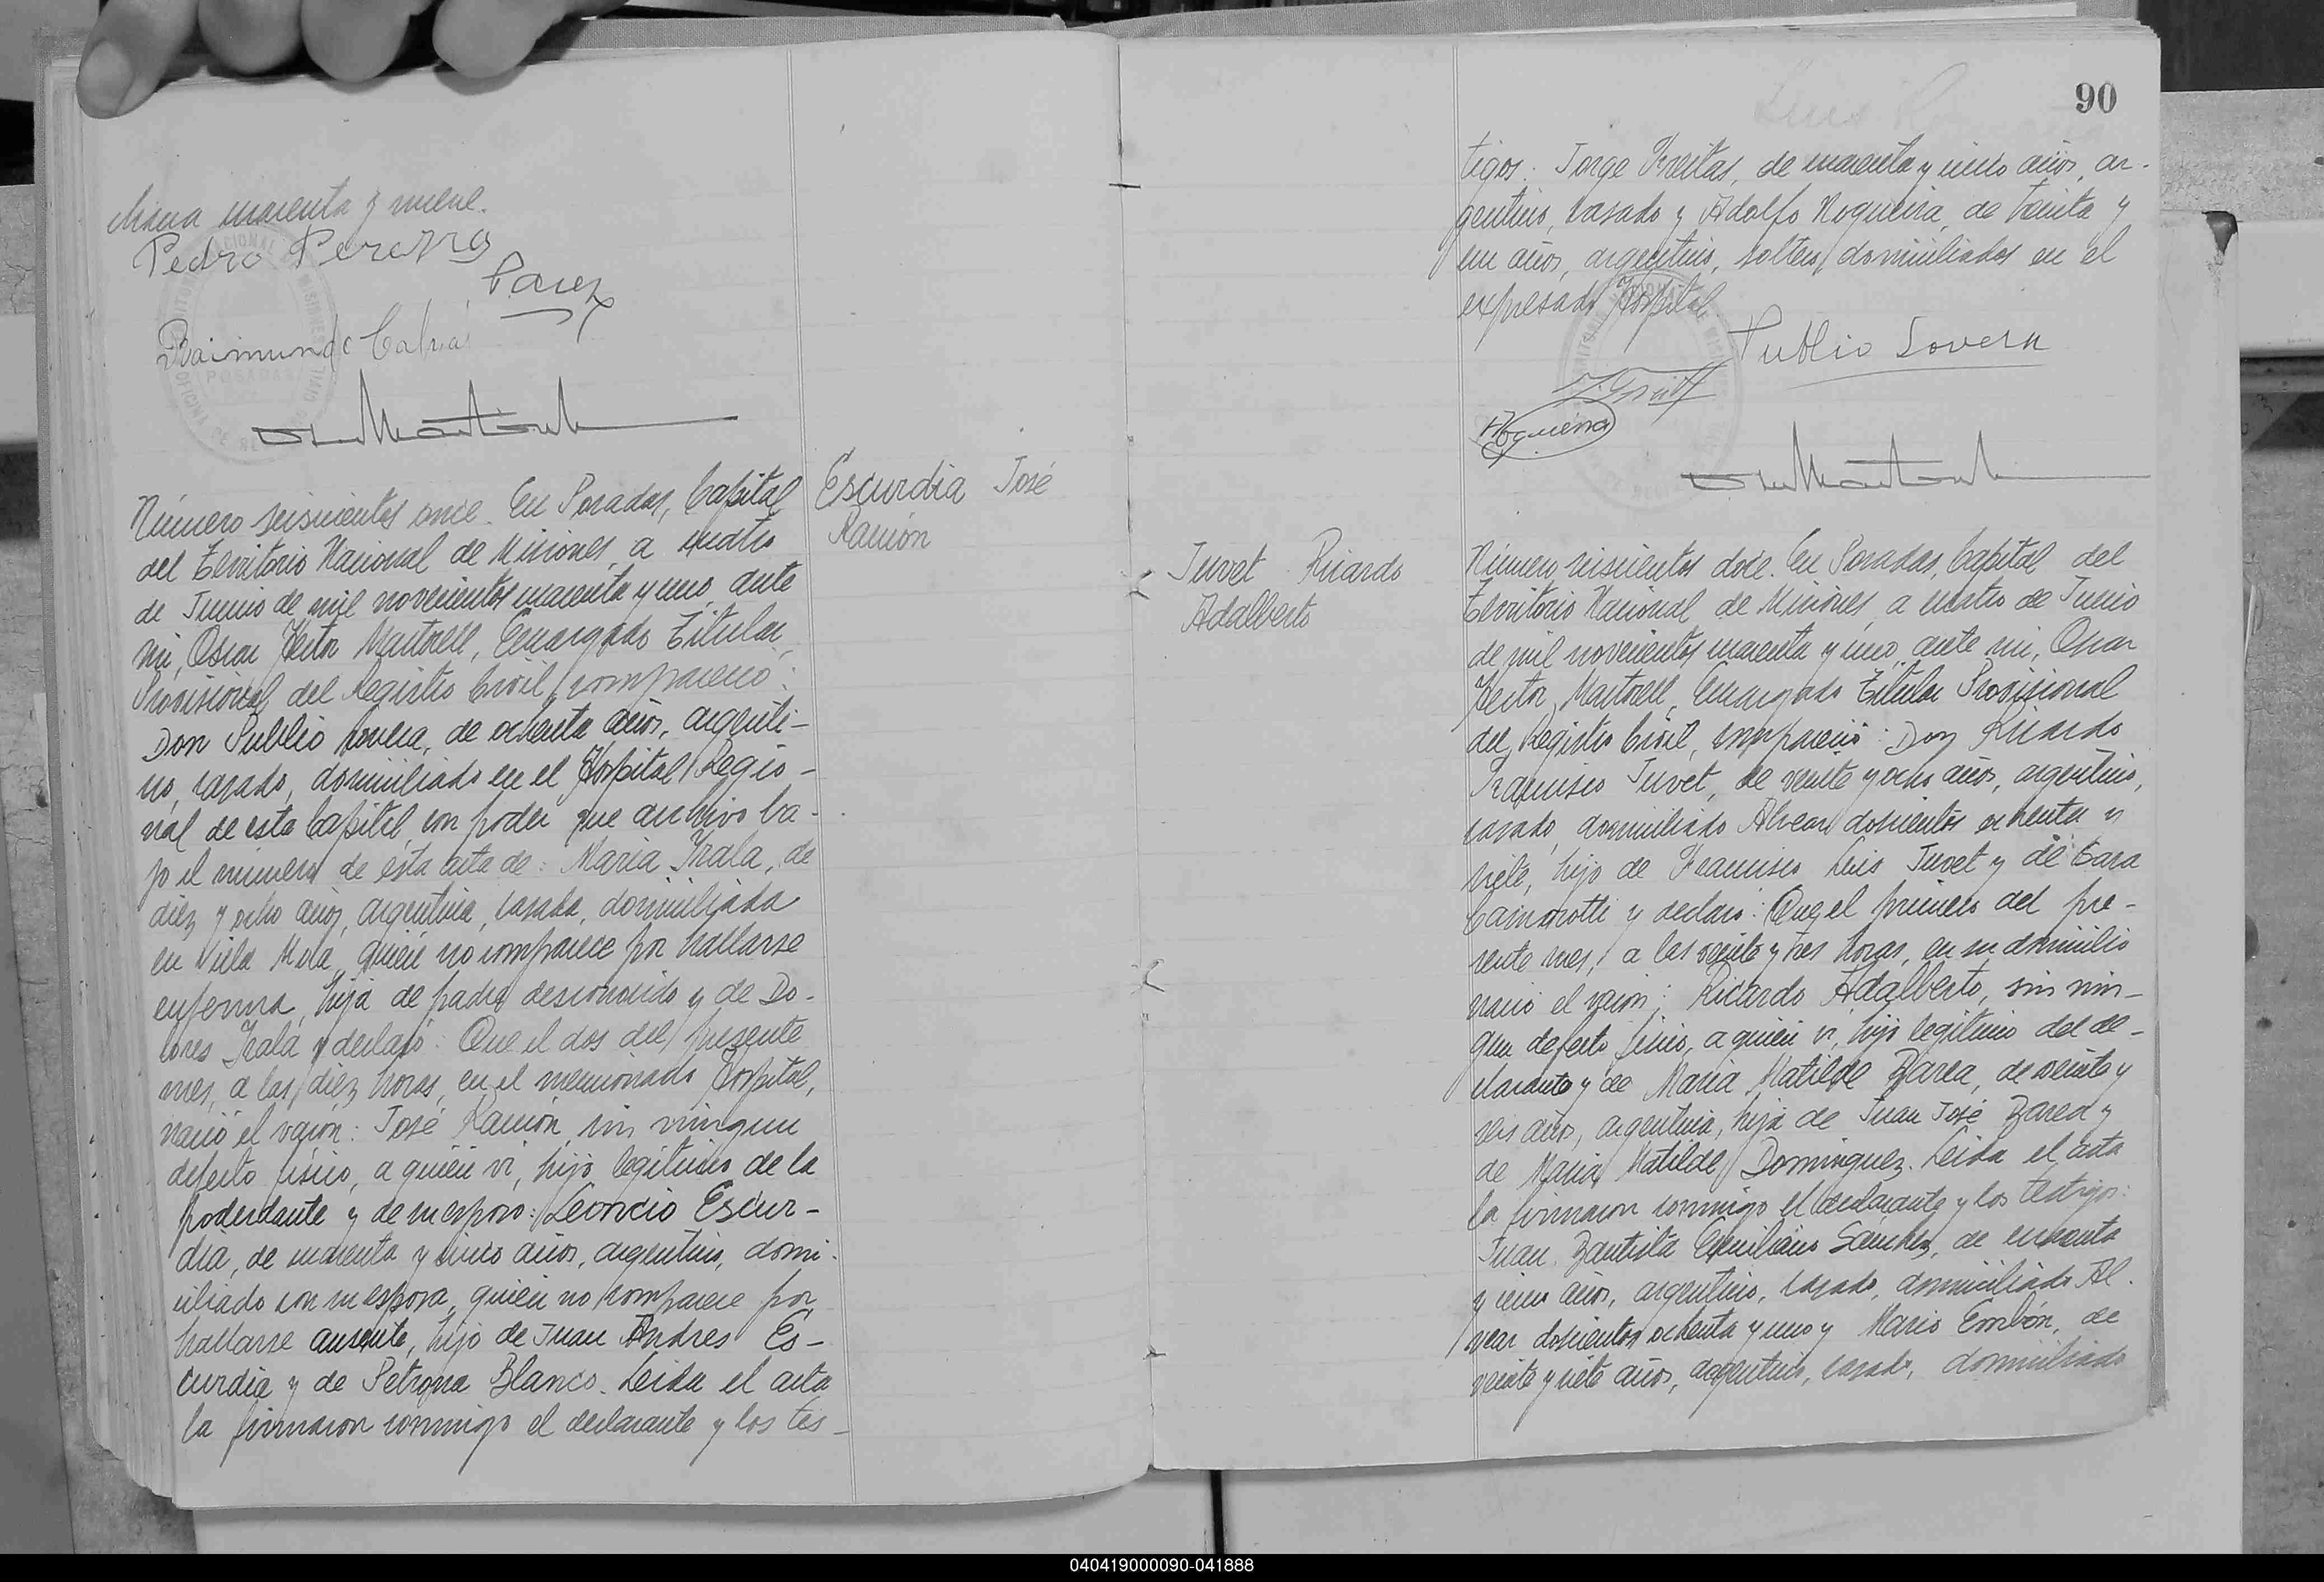 chana cuarenta y nueve.
Pedro Pereyra
Parez
Raimundo Cabra
Número seiscientos once. En Posadas, Capital
del Territorio Nacional de Misiones, a cuatro
de Junio de mil novecientos cuarenta y uno, ante
mi, Oscar Hector Martorell, Encargado Titular
Provisional del Registro Civil, compareció:
Don Publio Lovera, de ochenta años, argenti-
no, casado, domiciliado en el Hospital Regio-
nal de esta Capital, con poder que archivo ba-
jo el número de esta acta de: Maria Irala, de
diez y ocho años, argentina, casada, domiciliada
en Villa Mola, quién no comparece por hallarse
enferma, hija de padre desconocido y de Do-
lores Irala y declaró: Que el dos del presente
mes, a las diez horas, en el mencionado Hospital,
nació el varón: José Ramón, sin ningun
defecto fisico, a quién vi, hijo legitimo de la
poderdante y de su esposo: Leoncio Escur-
dia, de cuarenta y cinco años, argentino, domi-
ciliado con su esposa, quién no comparece por
hallarse ausente, hijo de Juan Andres Es-
curdia y de Petrona Blanco. Leida el acta
la firmaron conmigo el declarante y los tes-
Escurdia José
Ramón
90
tigos: Jorge Freitas, de cuarenta y cinco años, ar-
gentino, casado y Adolfo Nogueira, de treinta y
un años, argentino, soltero, domiciliados en el
expresado Hospital.
Publio Lovera
J. Freitas
ANogueira
Juvet Ricardo
Adalberto
Número seiscientos doce. En Posadas, Capital del
Territorio Nacional de Misiones, a cuatro de Junio
de mil novecientos cuarenta y uno, ante mi, Oscar
Hector Martorell, Encargado Titular Provisional
del Registro Civil, compareció: Don Ricardo
Francisco Juvet, de veinte y ocho años, argentino,
casado, domiciliado Alvear doscientos ochenta y
siete, hijo de Francisco Luis Juvet y de Sara
Cainarotti y declaró: Que el primero del pre-
sente mes, a las veinte y tres horas, en su domicilio
nació el varón: Ricardo Adalberto, sin nin-
gun defecto fisico, a quién vi, hijo legitimo del de-
clarante y de Maria Matilde Barea, de veinte y
seis años, argentina, hija de Juan José Barea y
de Maria Matilde Dominguez. Leida el acta
la firmaron conmigo el declarante y los testigos:
Juan Bautista Emiliano Sánchez, de cuarenta
y cinco años, argentino, casado, domiciliado Al-
vear doscientos ochenta y uno y Mario Embón, de
veinte y siete años, argentino, casado, domiciliado
040419000090-041888